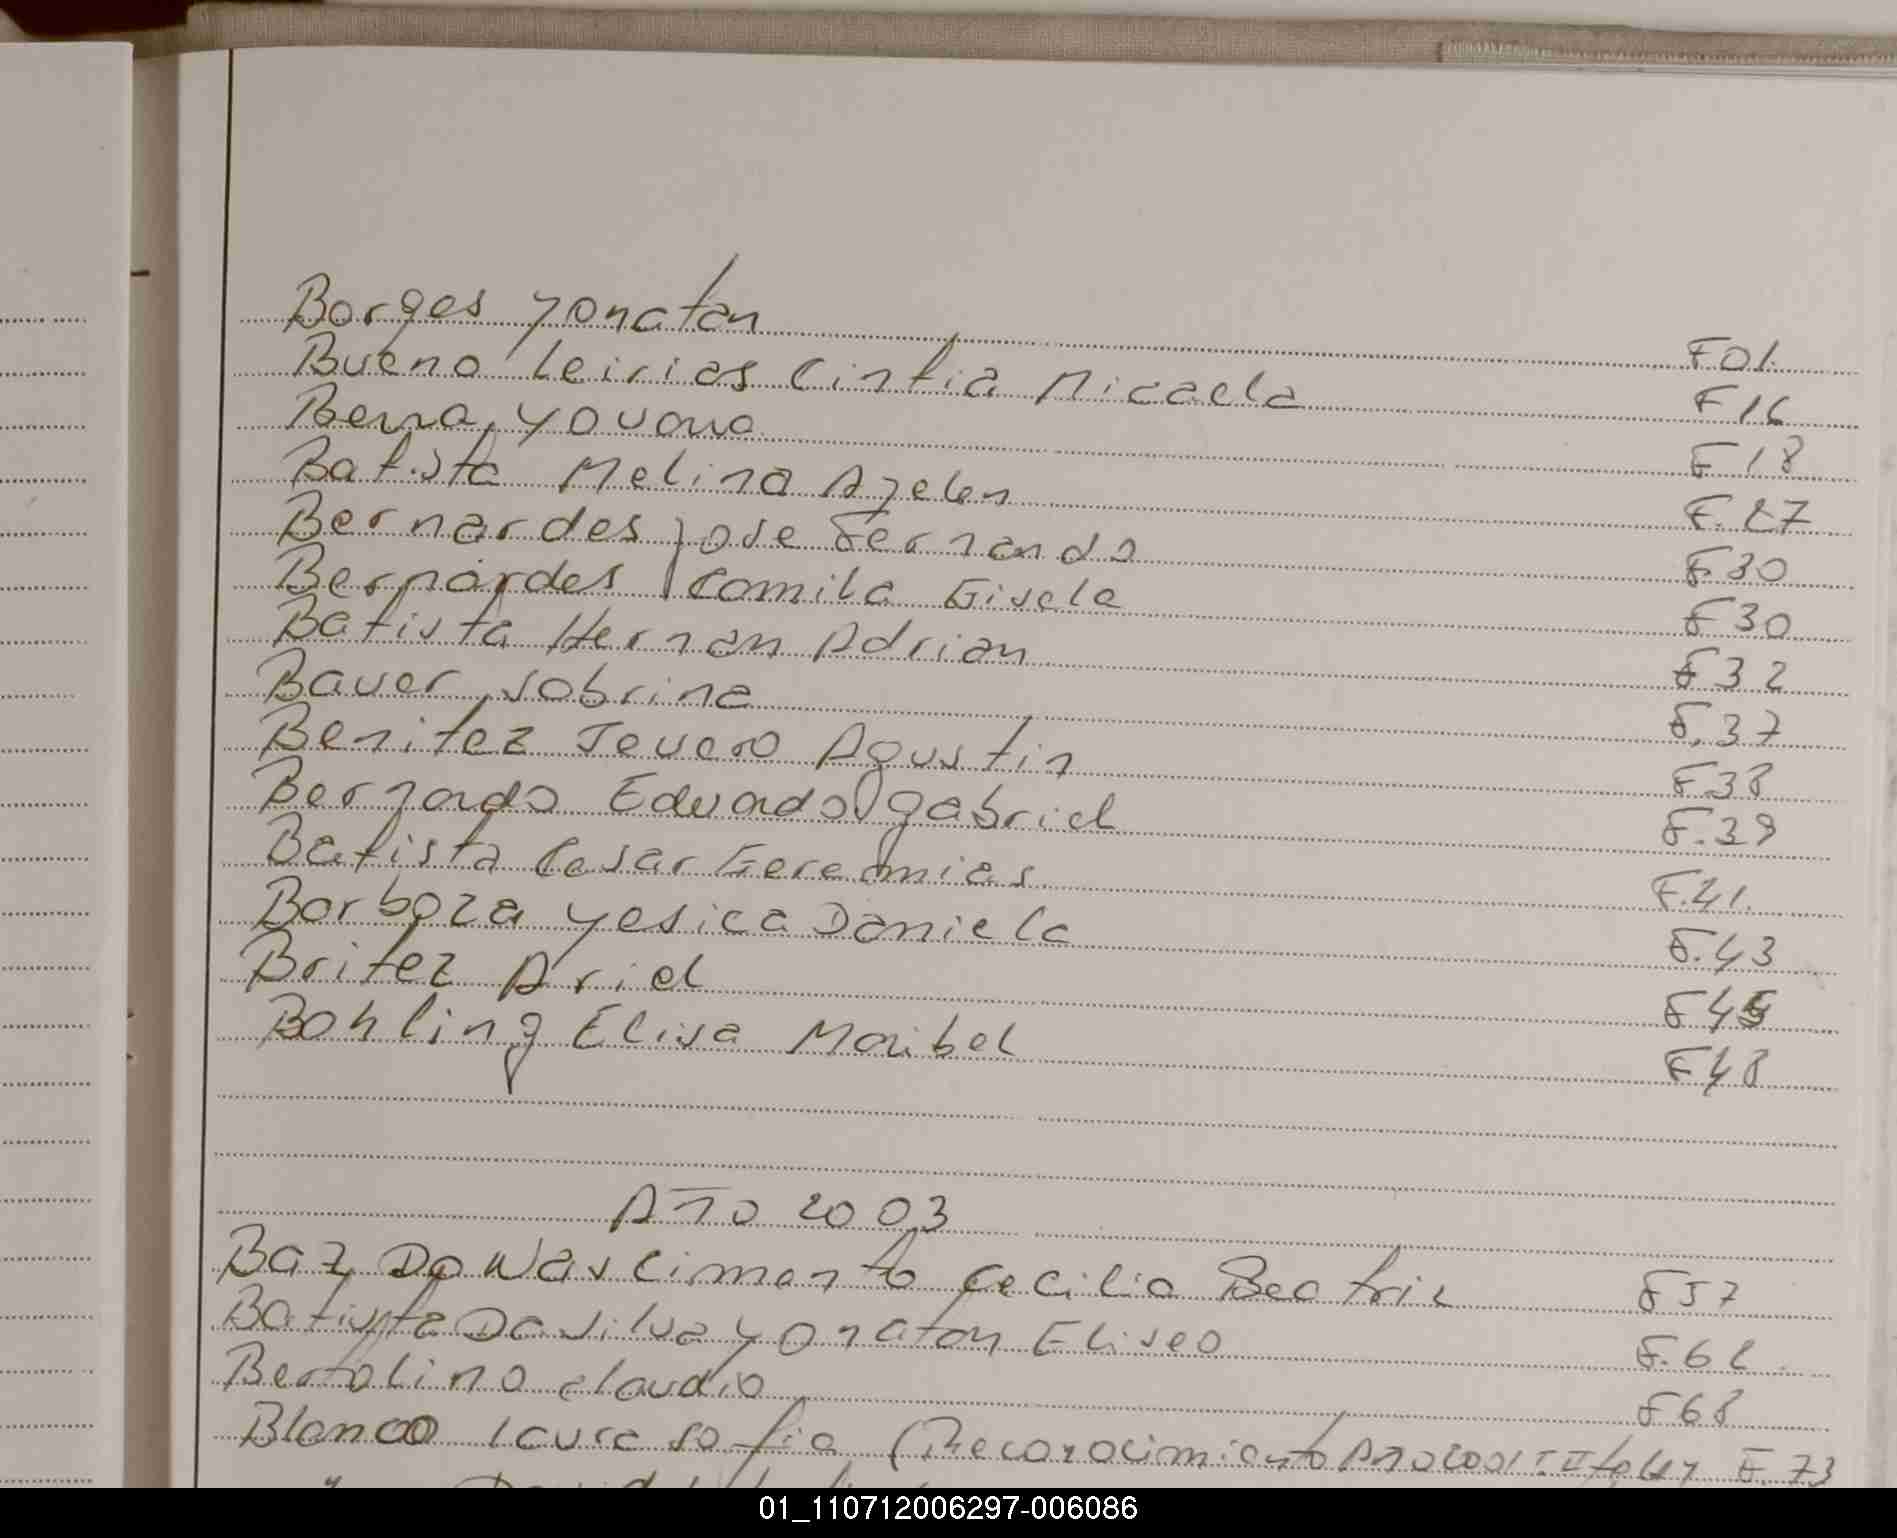 Borges Yonatan F01.
Bueno Leirias Cintia Micaela F16
Berna, Yovana F18
Batista Melina Azelen F.27
Bernardes Jose Fernando F30
Bernardes Camila Gisela F30
Batista Hernan Adrian F32
Bauer, Sabrina F.37
Benitez Agustin F.38
Bernardo Eduardo gabriel F.39
Batista Cesar Geremias F.41.
Barboza Yesica Daniela F.43
Britez Ariel F45
Bohling Elisa Maribel F48
Año 2003
Baz Do Nascimento Cecilia Beatriz F57
Batista Da Silva Yonatan Eliseo F.62
Bertolino claudio F68
Blanco laura sofia (Reconocimiento Año 2001 F.73
01_110712006297-006086